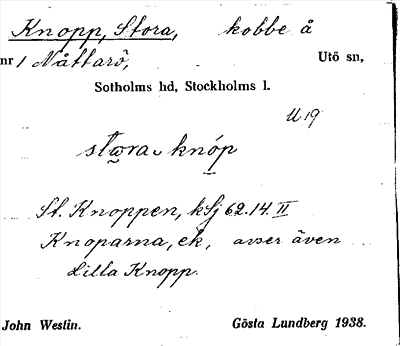 Knopp, Stora, kobbe å
nr 1 Nåttarö, Utö sn,
Sotholms hd, Stockholms l.
U 19
stωra knóp
St. Knoppen, kSj 62.14. II
Knoparna, ek, avser även
Lilla Knopp.
John Westin. Gösta Lundberg 1938.